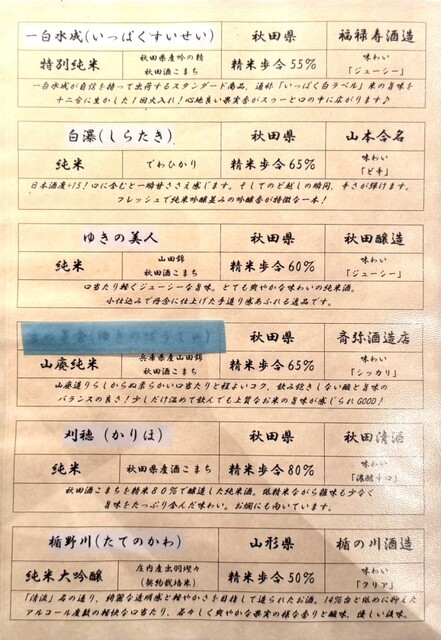 一白水成(いっぱくすいせい) 秋田県 福禄寿酒造
特別純米 秋田県産吟の精 秋田酒こまち 精米歩合 55% 味わい 「ジューシー」
一白水成が自信を持って出荷するスタンダード商品、通称「いっぱく白ラベル」米の旨味を
十二分に生かした1回火入れ!心地良い果実香がスゥーと口の中に広がります♪
白瀑(しらたき) 秋田県 山本合名
純米 でわひかり 精米歩合 65% 味わい 「ドキ」
日本酒度+15!口に含むと一瞬甘ささえ感じます。そしてのど越しの瞬間、辛さが輝けます。
フレッシュで純米吟醸並みの吟醸香が特徴な一本!
ゆきの美人 秋田県 秋田醸造
純米 山田錦 秋田酒こまち 精米歩合 60% 味わい 「ジューシー」
口当たり軽くジューシーな旨味。とても爽やかな味わいの純米酒。
小仕込みで丹念に仕上げた手造り感あふれる逸品です。
秋田県 斉弥酒造店
山廃純米 兵庫県産山田錦 秋田酒こまち 精米歩合 65% 味わい 「シッカリ」
山廃造りらしからぬ柔らかい口当たりと程よいコク、飲み飽きしない酸と旨味の
バランスの良さ!少しだけ温めて飲んでも上質なお米の旨味が感じられGOOD!
刈穂 (かりほ) 秋田県 秋田清酒
純米 秋田県産酒こまち 精米歩合 80% 味わい 「濃醇中口」
秋田酒こまちを精米80%で醸造した純米酒。低精米ながら雑味も少なく
旨味をたっぷり含んだ味わい。お燗にも向いています。
楯野川(たてのかわ) 山形県 楯の川酒造
純米大吟醸 庄内産出羽燦々 (契約栽培米) 精米歩合 50% 味わい 「クリア」
「清流」名の通り、綺麗な透明感と軽やかさを目指して造られたお酒。14%台と低めに抑えた
アルコール度数の軽快な口当たり、若々しく爽やかな果実の様な香りと酸味、優しい滋味。